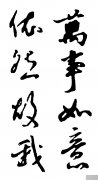 萬事如意
依然故我